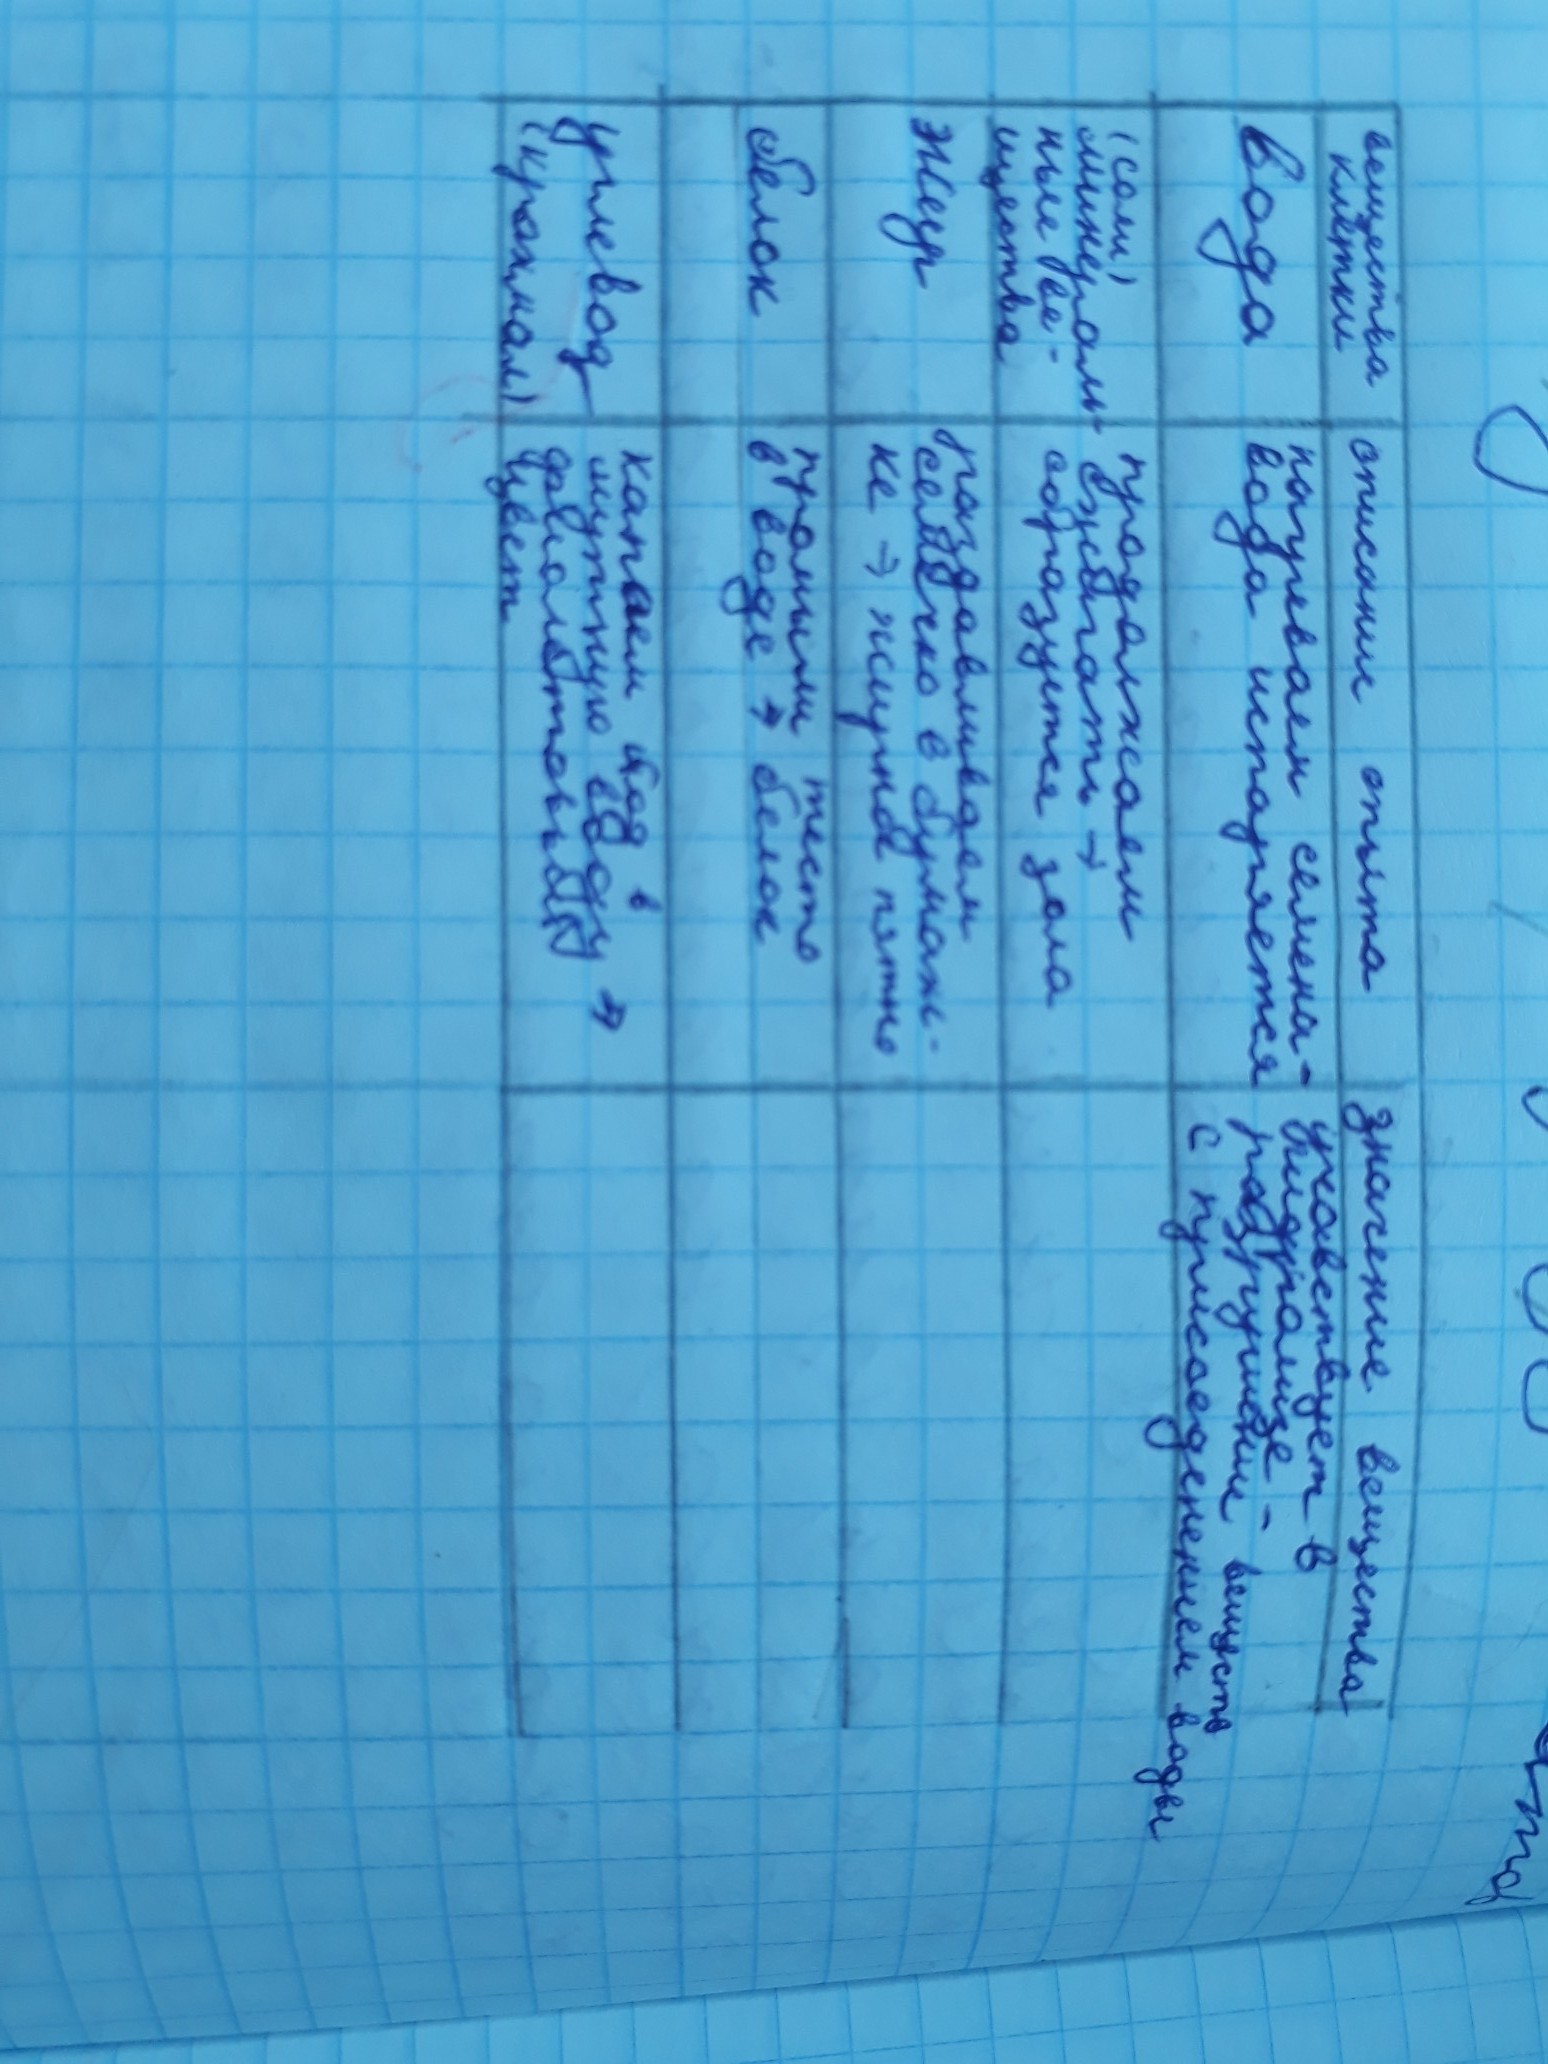 вещества
клетки
описании опыта
значение вещества
вода
нагреваем семена -
вода испаряется
учавствует в
гидролизе -
разрушении веществ
с присоеденением воды
(соли)
минераль-
ные ве-
щества
продолжаем
сжигать →
образуется зола
жир
раздавливаем
семечко в бумаж-
ке → жирное пятно
белок
промыли тесто
в воде → белок
углевод
(крахмал)
капаем йод в
мутную воду →
фиолетовый
цвет